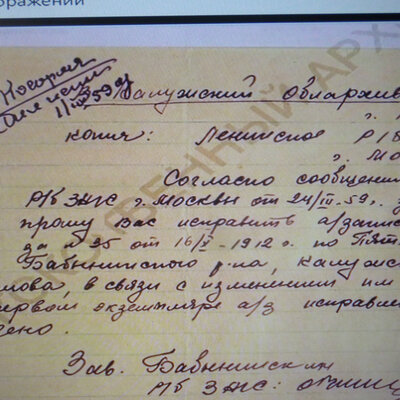 ображении
Копия
11/III 59 г
Калужский Облархив
копия: Ленинское Р
г. Мо
Согласно сообщени
РК ЗАГС г. Москвы от 24/III-59 г.
прошу Вас исправить а/запис
за № 25 от 16/V-1912 г. по Пят
Бабынинского р-на, Калужс
мова, в связи с изменением им
первом экземпляре а/з исправле
ено.
Зав. Бабынински
РБ ЗАГС: